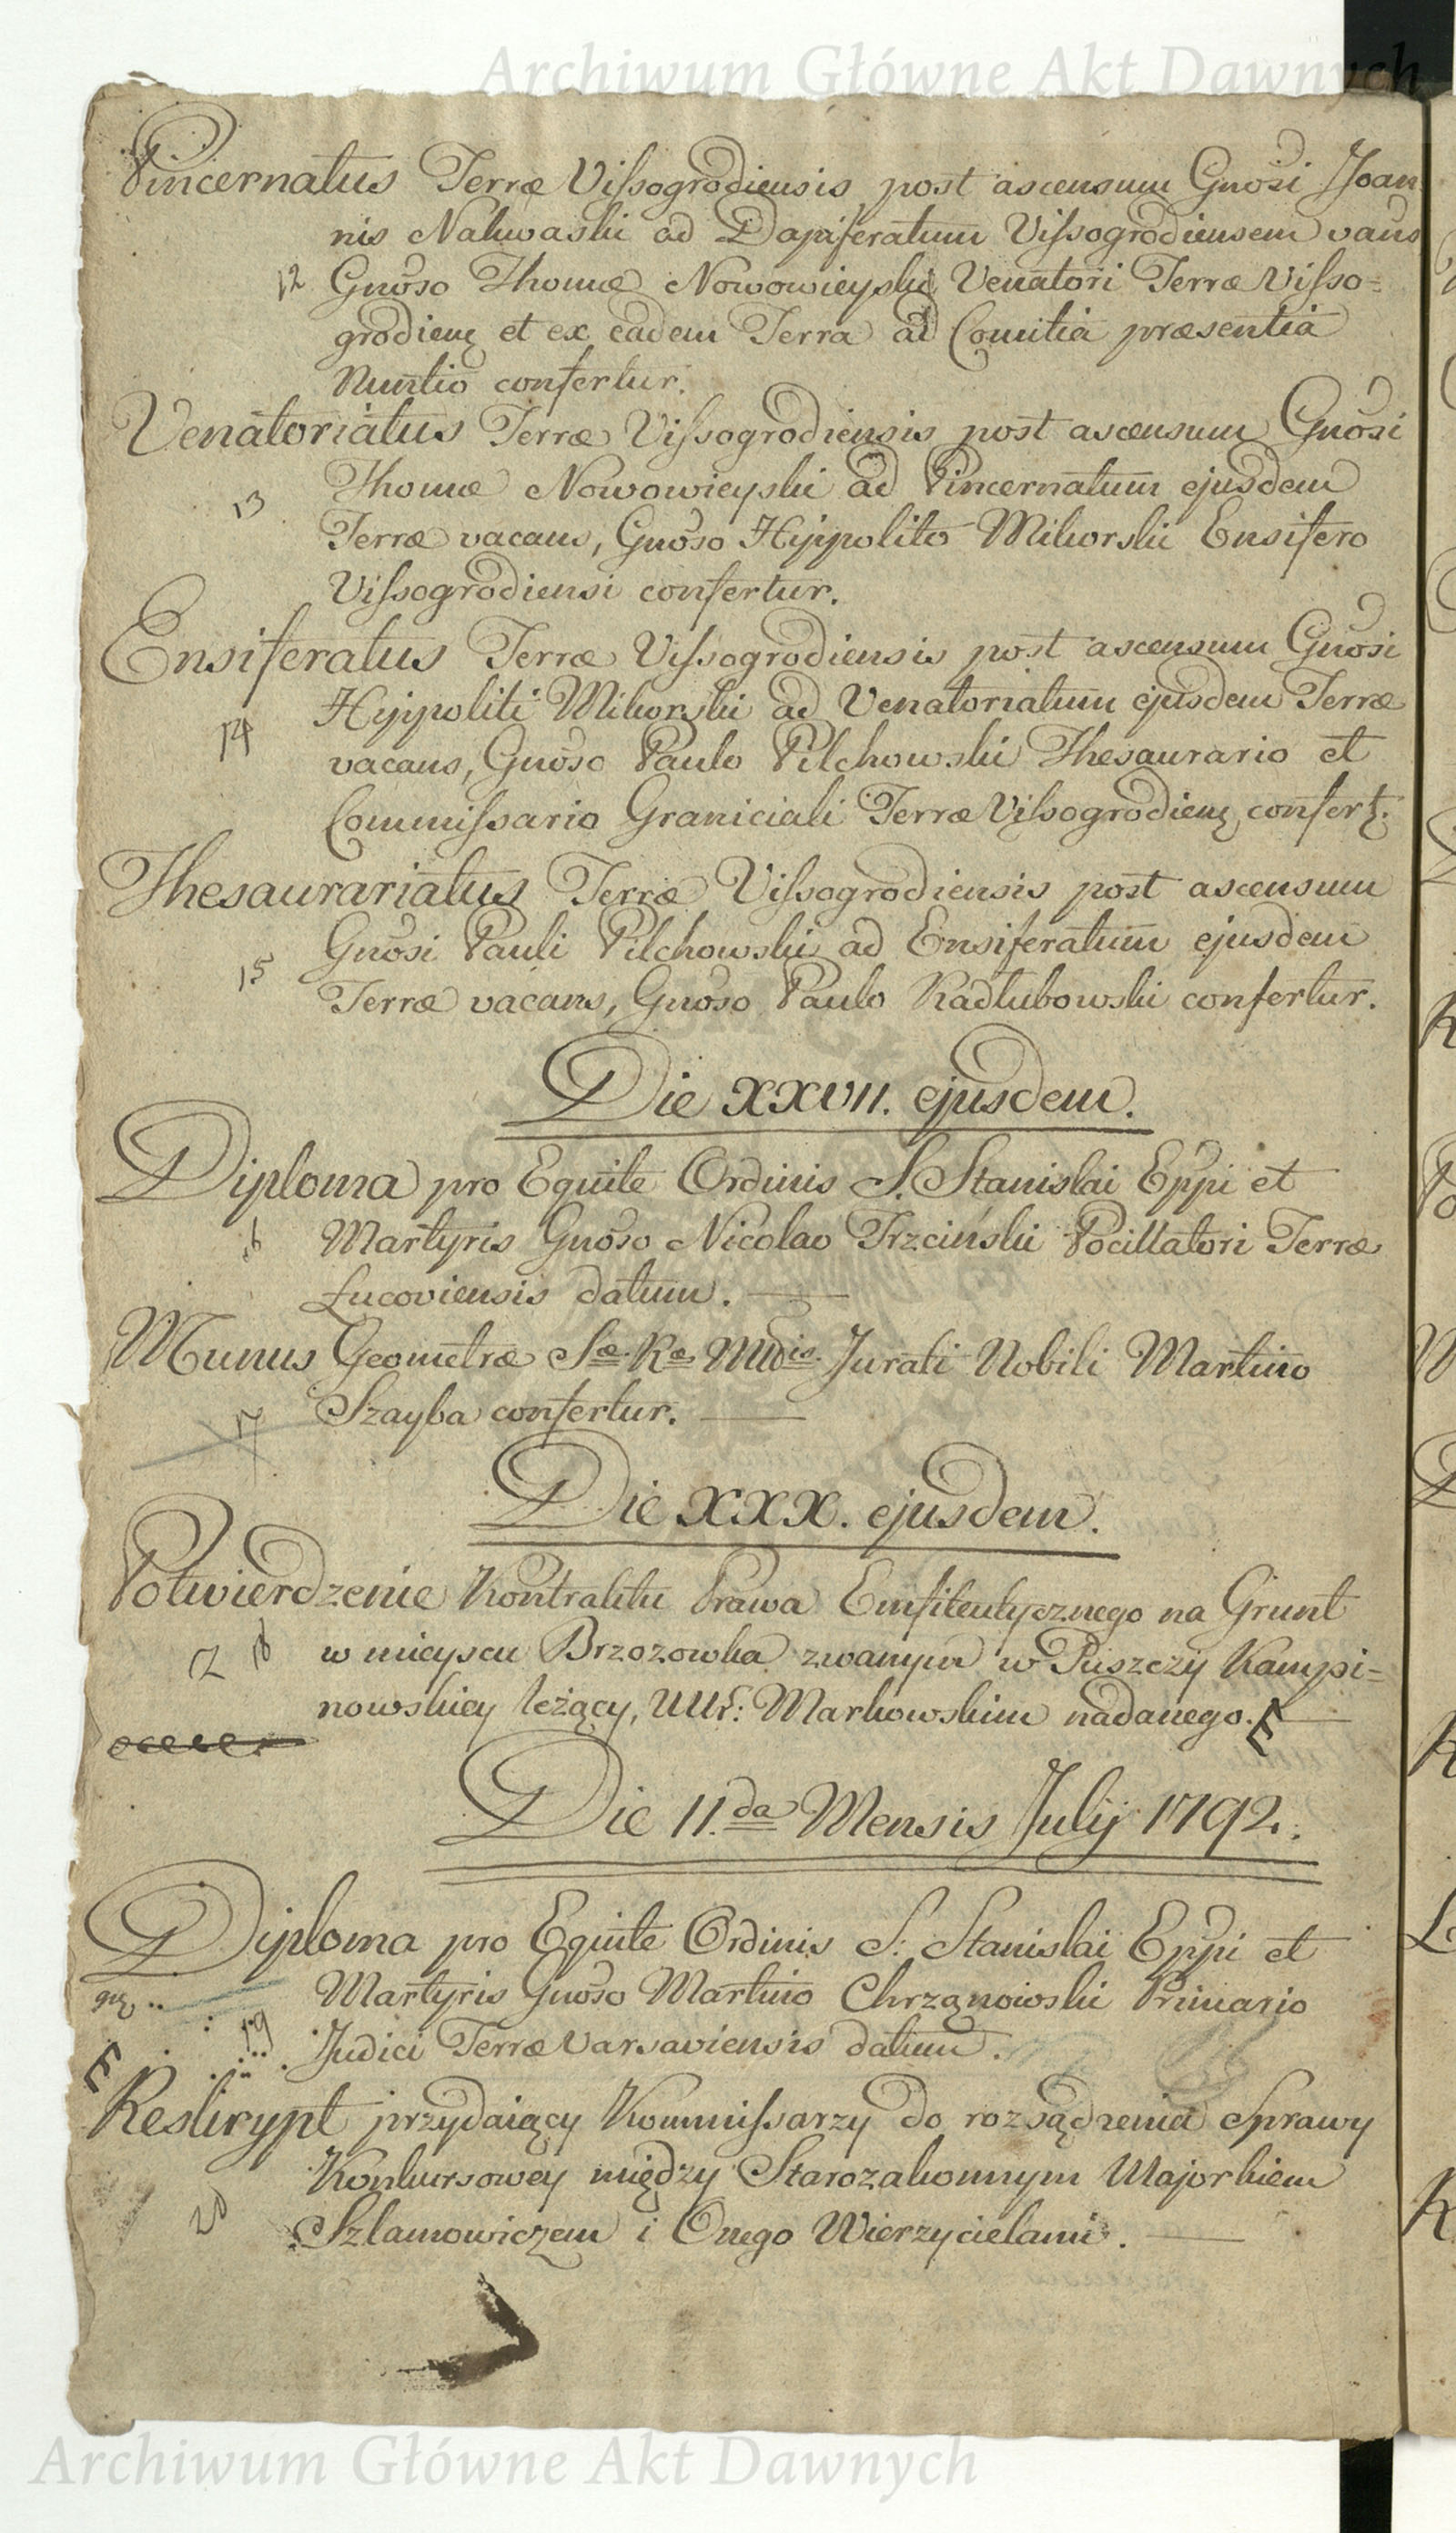 Archiwum Główne Akt Dawnych
Pincernatus Terræ Vissogrodiensis post ascensum Gnosi Joan
nis Nakwaski ad Dapiferatum Vissogrodiensem vacans
12 Gnoso Thomæ Nowowieyski Venatori Terræ Visso=
grodien et ex eadem Terra ad Comitia præsentia
Nuntio confertur.
Venatoriatus Terræ Vissogrodiensis post ascensum Gnosi
13 Thomæ Nowowieyski ad Pincernatum ejusdem
Terræ vacans, Gnoso Hyppolito Mikorski Ensifero
Vissogrodiensi confertur.
Ensiferatus Terræ Vissogrodiensis post ascensum Gnosi
14 Hyppoliti Mikorski ad Venatoriatum ejusdem Terræ
vacans, Gnoso Paulo Pilchowski Thesaurario et
Commissario Graniciali Terræ Vissogrodien confert.
Thesaurariatus Terræ Vissogrodiensis post ascensum
15 Gnosi Pauli Pilchowski ad Ensiferatum ejusdem
Terræ vacans, Gnoso Paulo Radlubowski confertur.
Die XXVII. ejusdem.
Diploma pro Equite Ordinis S. Stanislai Eppi et
16 Martyris Gnoso Nicolao Trzciński Pocillatori Terræ
Łucoviensis datum.
Munus Geometræ Sæ Ræ Mtis Jurati Nobili Martino
17 Szayba confertur.
Die XXX. ejusdem.
Potwierdzenie Kontraktu Prawa Emfiteutycznego na Grunt
18 w mieyscu Brzozowka zwanym w Puszczy Kampi=
nowskiey leżący, UUr: Markowskim nadanego. E
Die 11.da Mensis Julij 1792.
Diploma pro Equite Ordinis S. Stanislai Eppi et
19 Martyris Gnoso Martino Chrząnowski Primario
Judici Terræ Varsaviensis datum.
E
Reskrypt przydaiący Kommissarzy do rozsądzenia Sprawy
20 Konkursowey między Starozakonnym Majorkiem
Szlamowiczem i Onego Wierzycielami.
Archiwum Główne Akt Dawnych